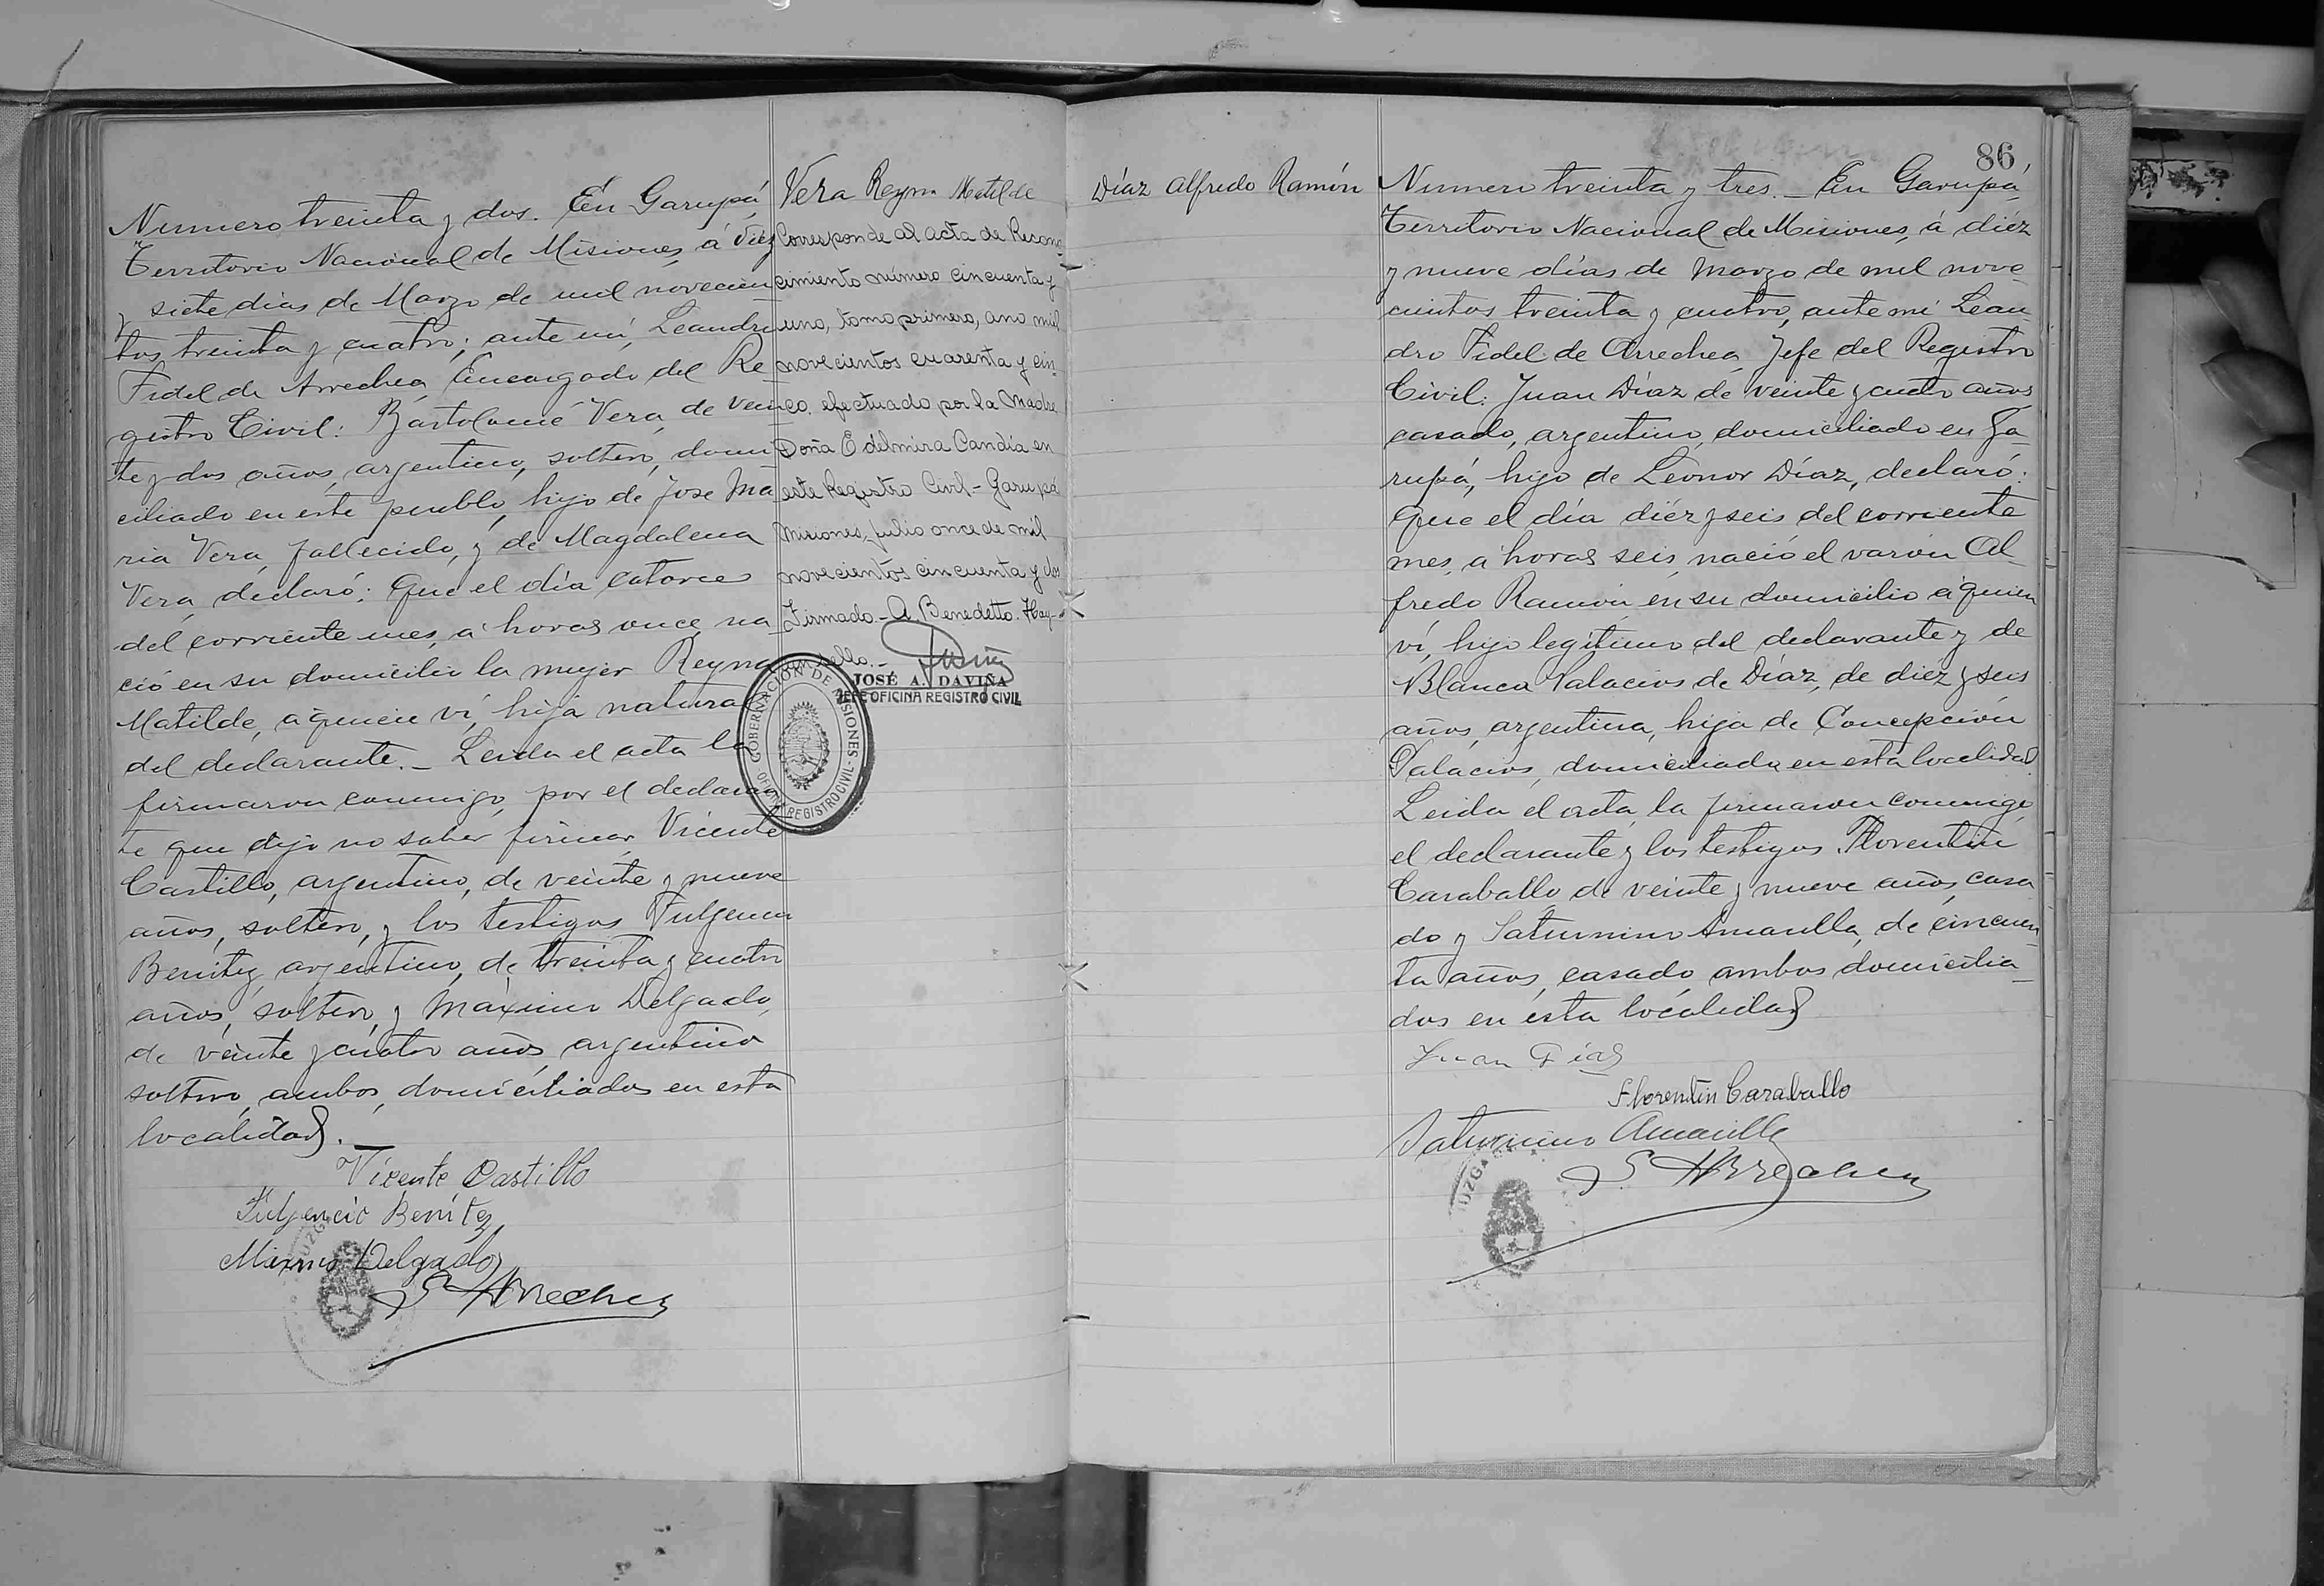 Numero treinta y dos. En Garupá,
Territorio Nacional de Misiones, á diez
y siete dias de Marzo de mil novecien
tos treinta y cuatro; ante mí, Leandro
Fidel de Arrechea, Encargado del Re
gistro Civil: Bartolomé Vera, de vein
te y dos años, argentino, soltero, domi
ciliado en este pueblo, hijo de Jose Ma
ria Vera, fallecido, y de Magdalena
Vera, declaró: Que el día catorce
del corriente mes, a horas once, na
ció en su domicilio la mujer Reyna
Matilde, a quien ví, hija natural
del declarante._ Leida el acta la
firmaron conmigo, por el declaran
te que dijo no saber firmar, Vicente
Castillo, argentino, de veinte y nueve
años, soltero, y los testigos Fulgencio
Benitez, argentino, de treinta y cuatro
años, soltero, y Máximo Delgado,
de veinte y cuatro años, argentino
soltero, ambos, domiciliados en esta
localidad.
Vicente Castillo
Fulgencio Benítez
Maximo Delgado
L Arrechea
Vera Reyna Matilde
Corresponde al acta de Recono
cimiento número cincuenta y
uno, tomo primero, ano mil
novecientos cuarenta y cin
co. efectuado por la madre
Doña Edelmira Candia en
este Registro Civil - Garupá
Misiones, julio once de mil
novecientos cincuenta y dos
Firmado - A. Benedetto. Hay
un sello.-
JOSÉ A. DAVIÑA
JEFE OFICINA REGISTRO CIVIL
GOBERNACIÓN DE MISIONES - OFICINA REGISTRO CIVIL
86
Díaz Alfredo Ramón
Numero treinta y tres._ En Garupá,
Territorio Nacional de Misiones, á diéz
y nueve días de Marzo de mil nove
cientos treinta y cuatro, ante mí Lean
dro Fidel de Arrechea, Jefe del Registro
Civil: Juan Díaz de veinte y cuatro años
casado, argentino, domiciliado en Ga
rupá, hijo de Leonor Díaz, declaró:
Que el día diéz y seis del corriente
mes, a horas seis, nació el varón Al
fredo Ramón en su domicilio a quien
ví, hijo legítimo del declarante y de
Blanca Palacios de Díaz, de diez y seis
años, argentina, hija de Concepción
Palacios, domiciliada en esta localidad.
Leida el acta, la firmaron conmigo
el declarante y los testigos Florentin
Caraballo de veinte y nueve años, casa
do y Saturnino Amarilla, de cincuen
ta años, casado, ambos domicilia
dos en esta localidad
Juan Dias
Florentín Caraballo
Saturnino Amarilla
L Arrechea